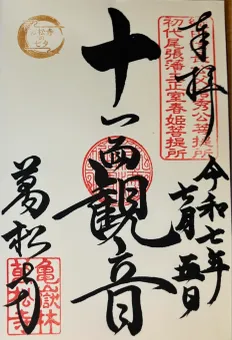 奉拝
初代尾張藩主正室春姫菩提所
令和七年
月五日
十一面観音
萬松寺
亀嶽林
萬松寺